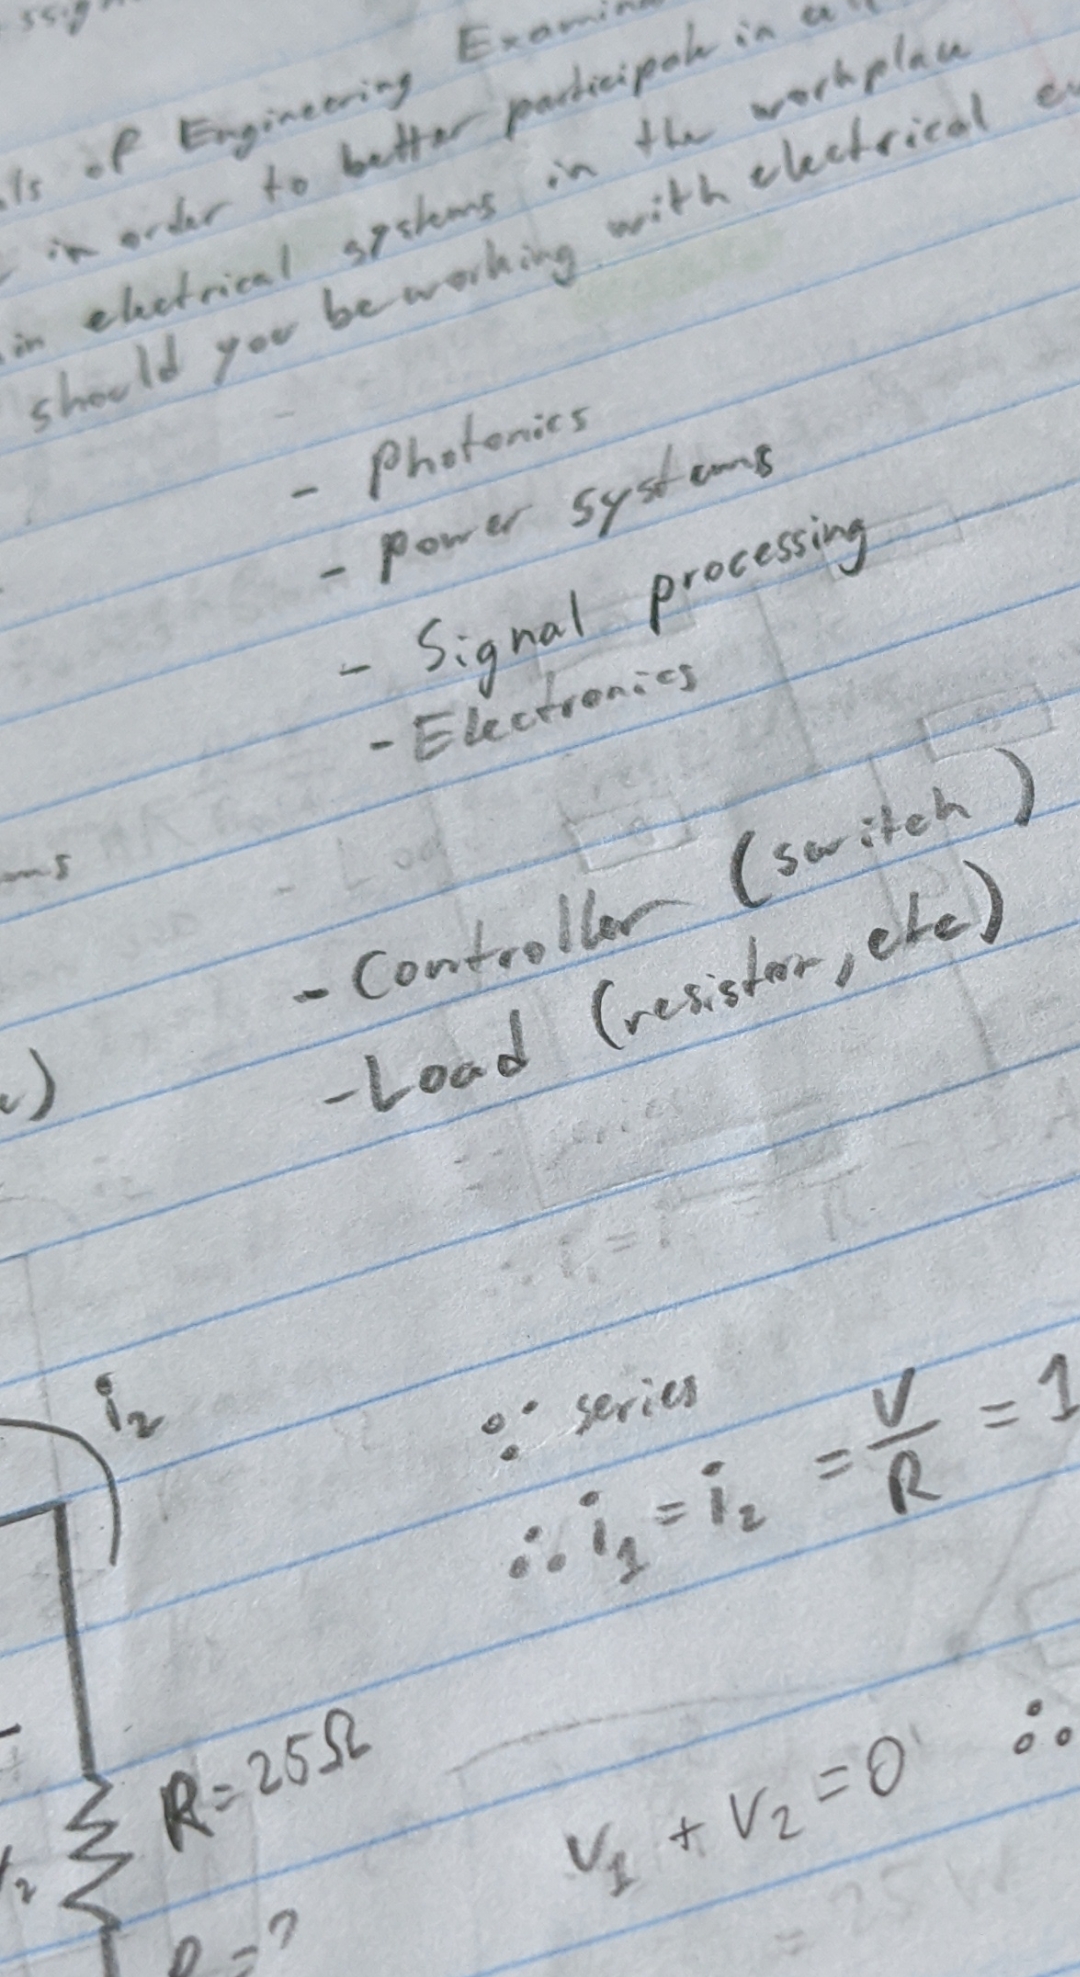 Examin
ls of Engineering
in order to better participate in a
in electrical systems in the workplace
should you be working with electrical e
- Photonics
- Power systems
- Signal processing
- Electronics
ms
- Controller (switch)
- Load (resistor, etc)
i₂
∵ series
∴ i₁ = i₂ = V/R = 1
R = 25Ω
V₁ + V₂ = 0 ∴
V₂
P = ?
= 25 W